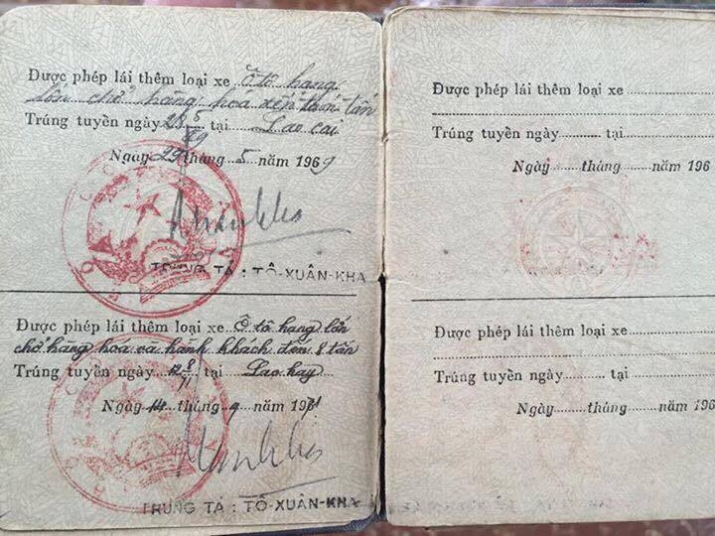 Được phép lái thêm loại xe Ô tô hạng
lớn chở hàng hoá
Trúng tuyển ngày 23 5/69 tại Lao cai
Ngày 29 tháng 5 năm 1969
TRUNG TÁ : TÔ-XUÂN-KHA
Được phép lái thêm loại xe Ô tô hạng lớn
chở hang hoá và hành khách đến 8 tấn
Trúng tuyển ngày 8/71 tại Lao kay
Ngày 14 tháng 9 năm 1971
TRUNG TÁ : TÔ-XUÂN-KHA
Được phép lái thêm loại xe
Trúng tuyển ngày tại
Ngày tháng năm 196
Được phép lái thêm loại xe
Trúng tuyển ngày tại
Ngày tháng năm 196